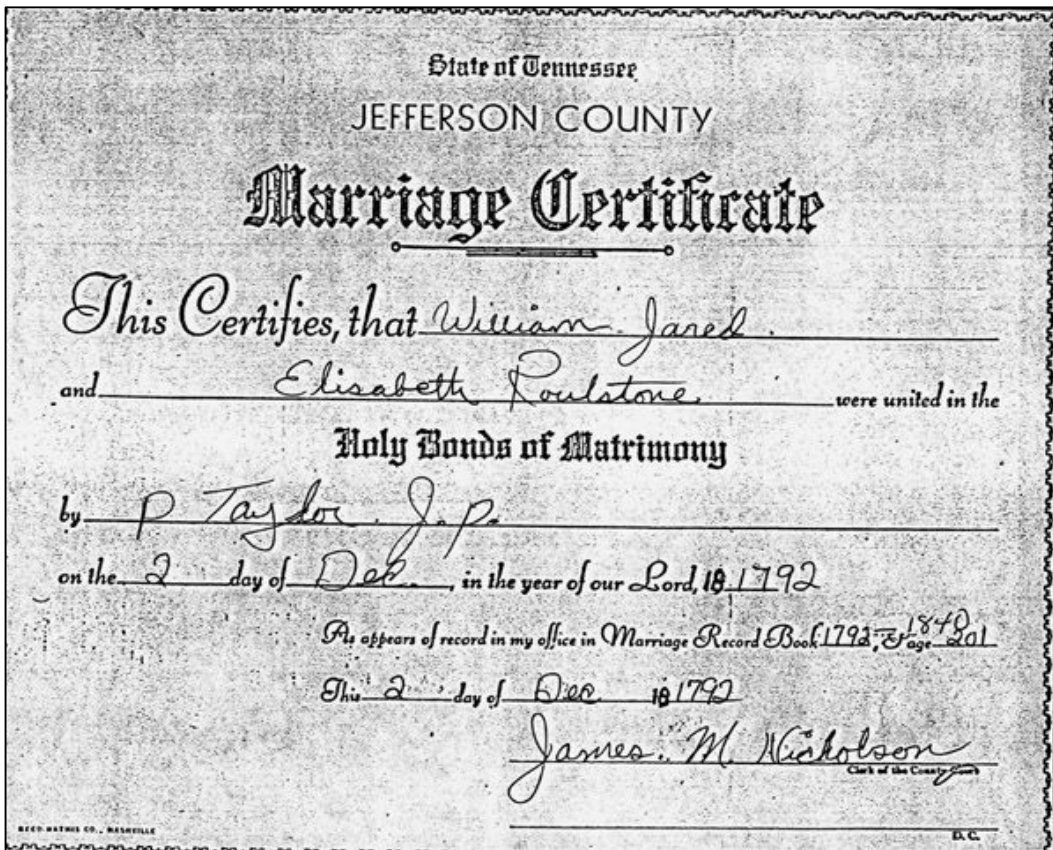 State of Tennessee
JEFFERSON COUNTY
Marriage Certificate
This Certifies, that William Jared.
and Elisabeth Roulstone were united in the
Holy Bonds of Matrimony
by P Taylor J.P.
on the 2 day of Dec., in the year of our Lord, 18 1792
As appears of record in my office in Marriage Record Book 1792-1840, Page 201
This 2 day of Dec 18 1792
James. M. Nicholson
Clerk of the County Court
D. C.
NASHVILLE